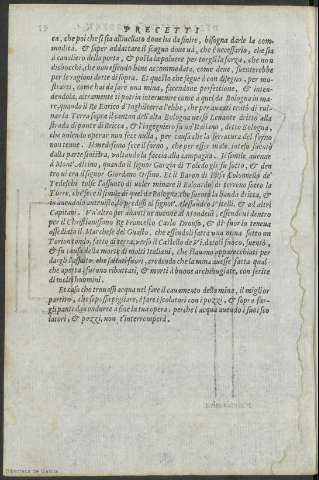 PRECETTI
ca, che poi ch'ella si è allucellato doue ha da finire, bisogna darle la com-
modità. & saper addattare il scagno doue uà, che è necessario, che sia
à caualiero della porta, & posta la poluere per torgli la forza, che non
disbocchi, che non essendo ben accommodata, come deue, suenterebbe
per le ragioni dette di sopra. Et quello che segue è con disegno, per mo-
strarti, come hai da fare una mina, facendone perfettione, & inten-
dendola, altramente ti potria interuenire come à quei da Bologna in ma-
re, quando il Re Enrico d'Inghilterra l'ebbe, che per auanti tentò di rui-
nar la Terra sopra il canton dell'alta Bologna uerso Leuante dritto alla
strada di ponte di Bricca, & l'ingegniero fu un'Italiano, detto Bologna,
qual uolendo operar non fece nulla, per causa che la serratura del forno
non tenne. Il medesimo fece il forno, che per esser male inteso sucutò
dalla parte sinistra, uoltandola faccia alla campagna. Il simile auenne
à Mont'alcino, quando il signor Garzia di Toledo gli fu sotto, & den
tro ui era il signor Giordano Orsino. Et il Baron di Colonnello de'
Tedeschi tolse l'assunto di uoler minare il Baloardo di terreno sotto la
Torre, che fece il simile di quel de Bologna, che suentò la banda dritta, &
io auendolo auertito, lo predissi al signor Alessandro Vitelli, & ad altri
Capitani. Vn'altro per auanti ne auuenne al Mondeuì, essendoui dentro
per il Christianissimo Re Francesco Carlo Droso, & di fuori la teneua
assediata il Marchese del Guasto, che essendoli fatta una mina sotto un
Turiontondo, fatto di terra, uerso il Castello de datoli fuoco, suentò,
& fu causa della morte di molti Italiani, che stauano apparecchiati per
dargli l'assalto che sudetti credendo che la mina auesse fatta qual-
che aperta furono ributtati, & morti à buone archibugiate, con ferite
di molti huomini.
Et caso che trouassi acqua nel fare il cauamento della mina, il miglior
partito, che si possi pigliare, è fare i scolatori con i pozzi, & sopra far-
gli ponti da condurre à fine la tua opera: perche l'acqua auendo i suoi sco
latori, & pozzi, non t'interromperà.
Biblioteca de Galicia